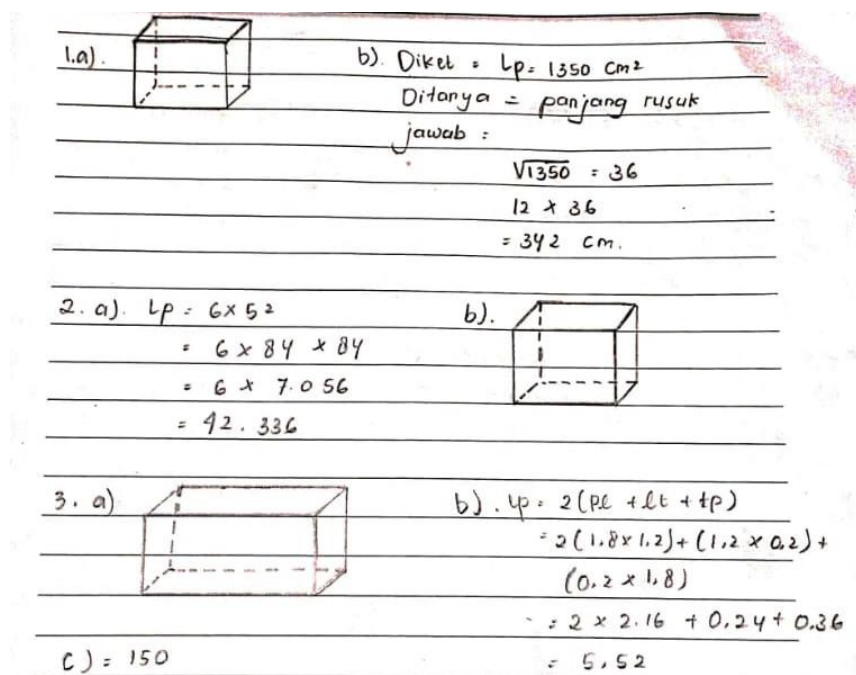 1.a).
b). Diket = Lp = 1350 cm²
Ditanya = panjang rusuk
jawab :
√1350 = 36
12 x 36
= 342 cm.
2. a). Lp = 6 x 5²
= 6 x 84 x 84
= 6 x 7.056
= 42.336
b).
3. a)
b). Lp = 2(pl + lt + tp)
= 2(1,8 x 1,2) + (1,2 x 0,2) +
(0,2 x 1,8)
= 2 x 2.16 + 0,24 + 0,36
= 5,52
c) = 150